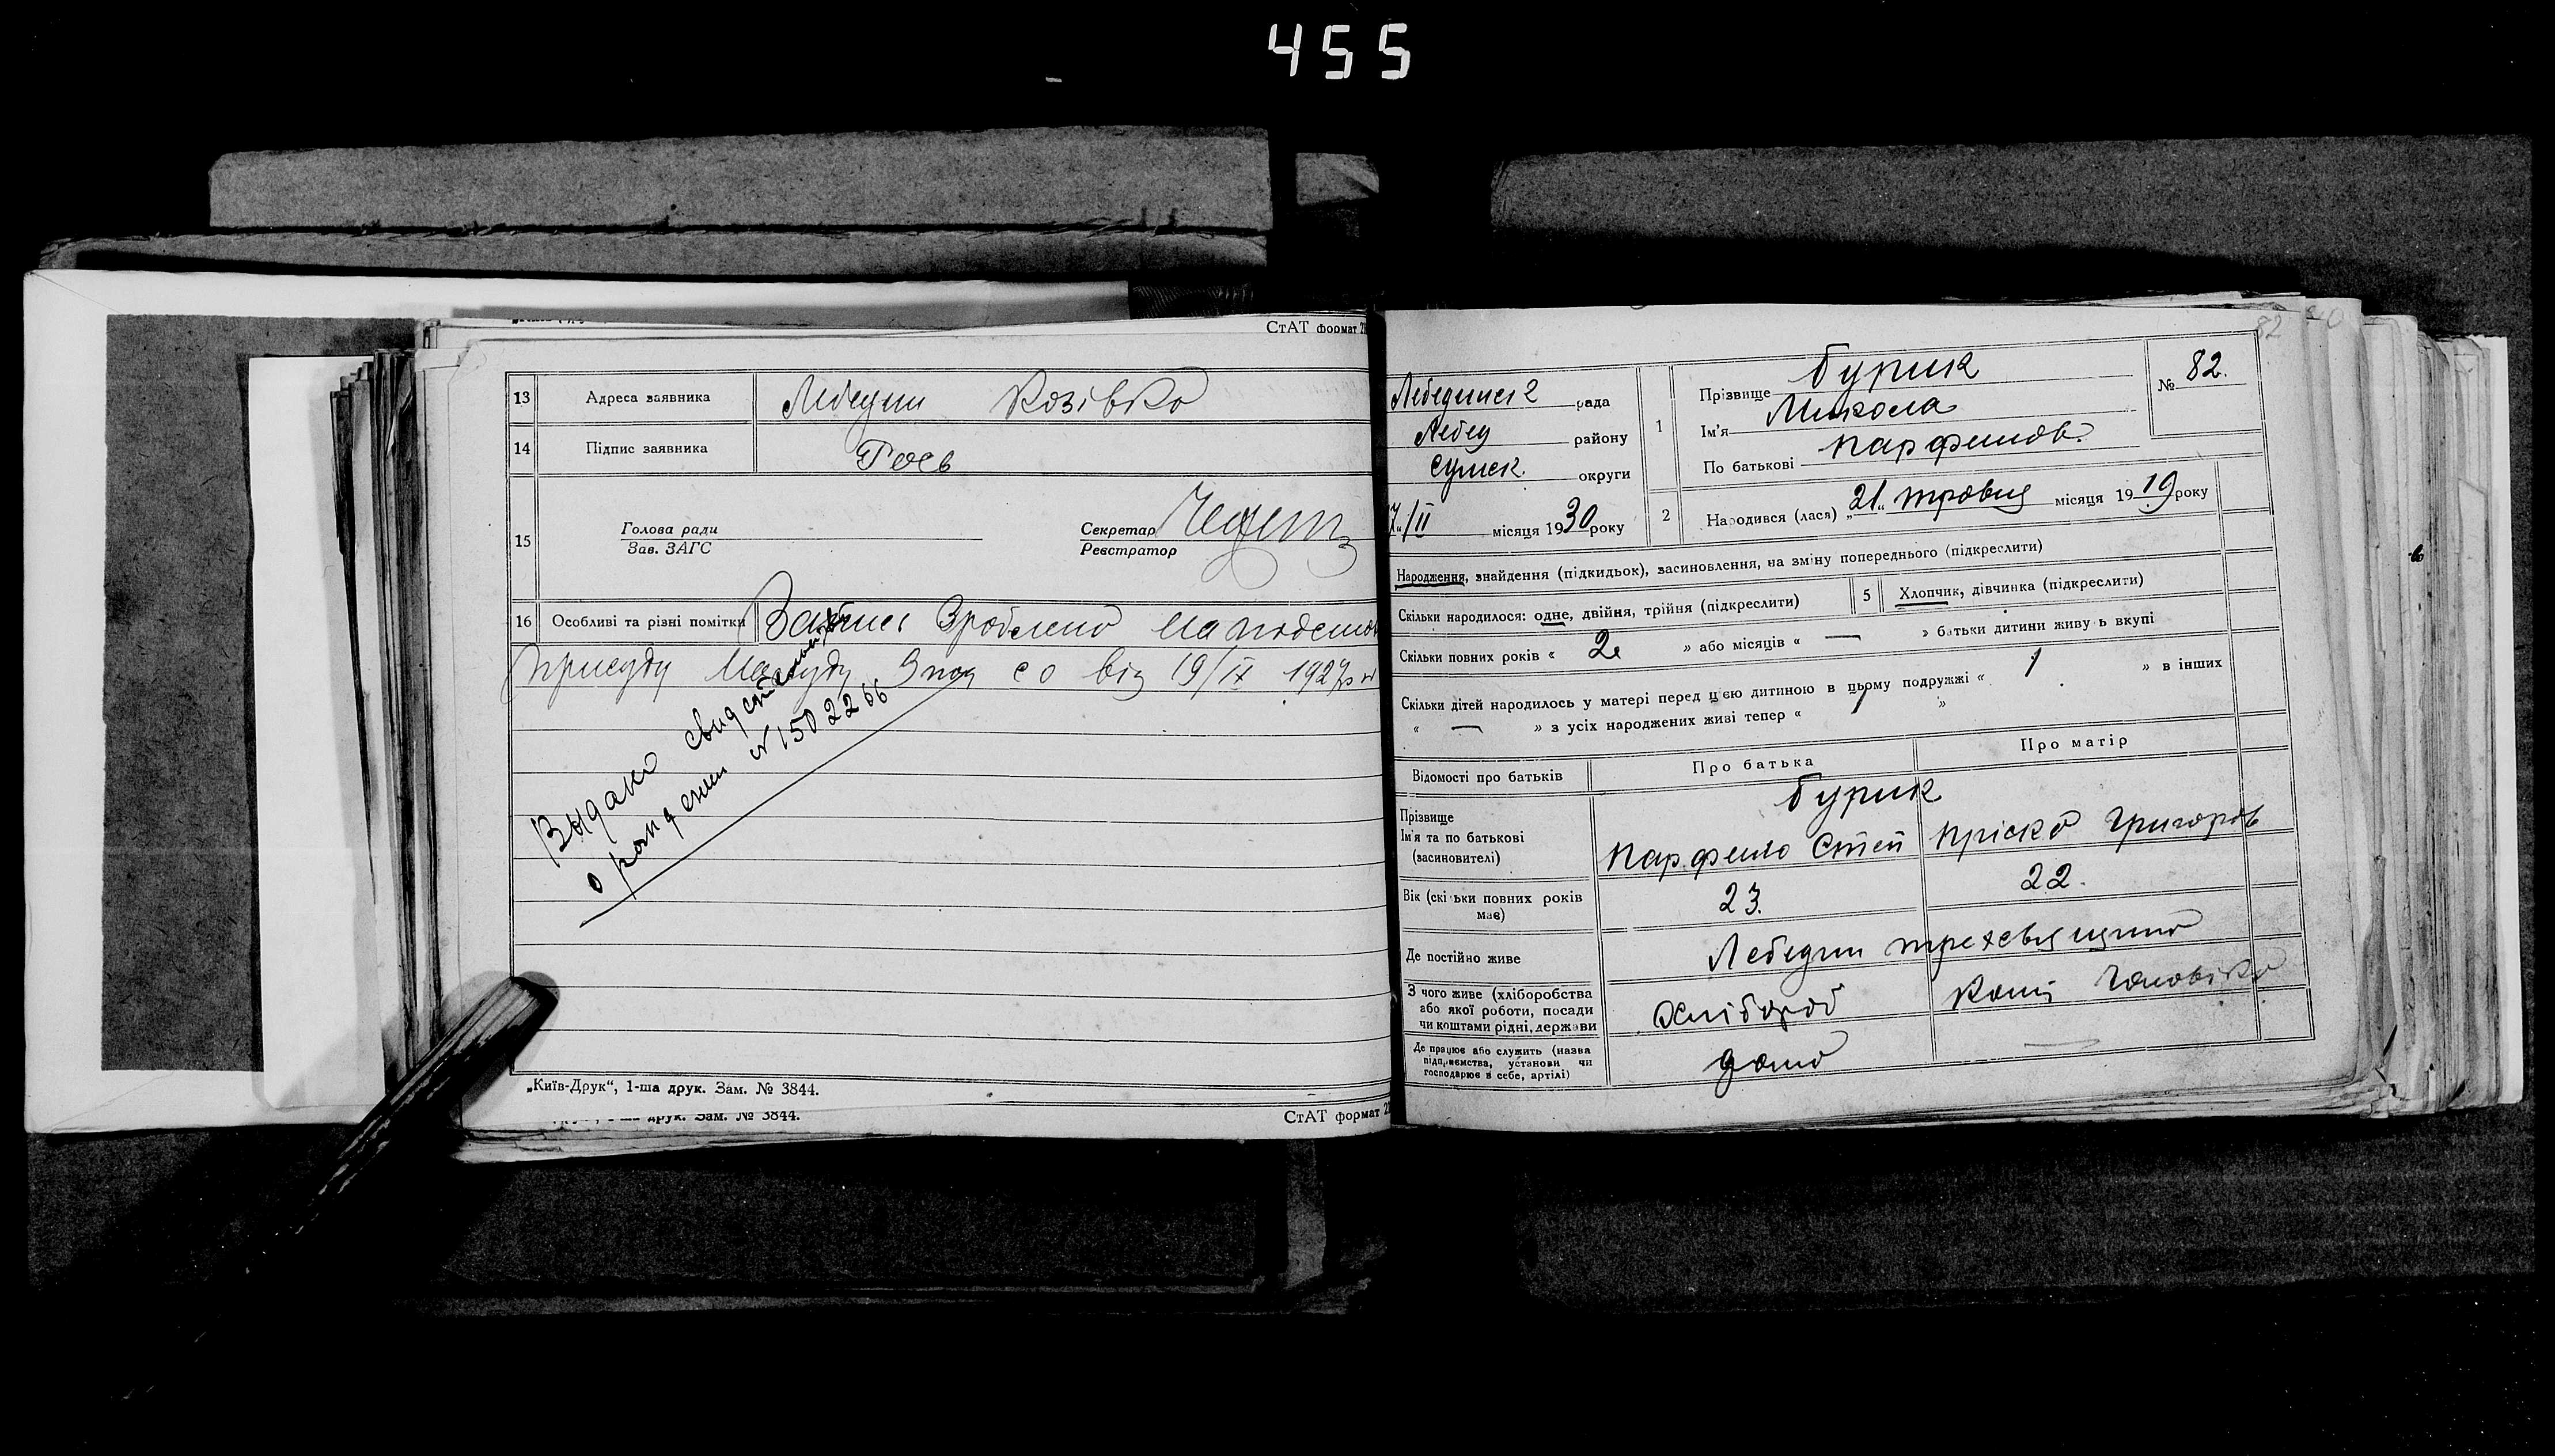 455
СтАТ формат 2
13 Адреса заявника Лебедин Козівка
14 Підпис заявника Гоєв
15 Голова ради
Зав. ЗАГС
Секретар
Реєстратор
16 Особливі та різні помітки Запис зроблено на подстав
присуду Нарсуду від 19/IX 1927р
Выдано свид
о рождении № 1502266
„Київ-Друк“, 1-ша друк. Зам. № 3844.
друк. Зам. № 3844.
СтАТ формат 2
82
рада
Лебед району
Сумск. округи
7/II місяця 1930 року
1 Прізвище Бурик
Ім'я Микола
По батькові Парфенов.
№ 82.
2 Народився (лася) „21„ травня місяця 1919 року
Народження, знайдення (підкидьок), засиновлення, на зміну попереднього (підкреслити)
Скільки народилося: одне, двійня, трійня (підкреслити)
5 Хлопчик, дівчинка (підкреслити)
Скільки повних років « 2 » або місяців « — » батьки дитини живуть вкупі
Скільки дітей народилось у матері перед цією дитиною в цьому подружжі « 1 » в інших
« — » з усіх народжених живі тепер « 1 »
Відомості про батьків Про батька Про матір
Прізвище Бурик
Ім'я та по батькові
(засиновителі) Парфило Степ Пріска Григоров
Вік (скільки повних років
має) 23. 22.
Де постійно живе Лебедин
З чого живе (хліборобства
або якої роботи, посади
чи коштами рідні, держави Хлібороб Кошт Чоловіка
Де працює або служить (назва
підприємства, установи чи
господарює в себе, артілі) дома —